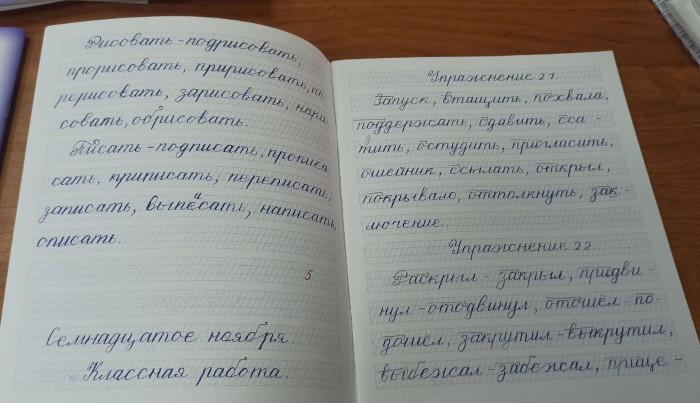 Рисовать - подрисовать,
прорисовать, пририсовать, пе
рерисовать, зарисовать, нари
совать, обрисовать.
Писать - подписать, прописа
сать, приписать, переписать,
записать, выписать, написать,
описать.
5
Семнадцатое ноября.
Классная работа.
Упражнение 21.
Запуск, втащить, похвала,
поддержать, сдавить, оса -
тить, остудить, пригласить,
ошейник, осылать, открыл,
покрывало, оттолкнуть, зак -
лючение.
Упражнение 22.
Раскрыл - закрыл, придви -
нул - отодвинул, отошёл - по -
дошёл, закрутил - выкрутил,
выбежал - забежал, прице -